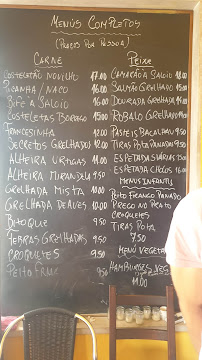 MENUS COMPLETOS
(PREÇOS POR PESSOA)
CARNE
COSTELETÃO NOVILHO 17.00
PICANHA / NACO 16.00
BIFE À SALOIO
COSTELETAS BORREGO
FRANCESINHA
SECRETOS GRELHADOS
ALHEIRA VINHAIS 11.00
ALHEIRA MIRANDELA
GRELHADA MISTA 10.00
GRELHADA DE AVES 10.00
BITOQUE 9.50
FEBRAS GRELHADAS 9.50
CROQUETES 9.50
PEITO FRANGO 9.50
PEIXE
CAMARÃO À SALOIO 18.00
SALMÃO GRELHADO
DOURADA GRELHADA
ROBALO GRELHADO
PASTEIS BACALHAU 9.50
TIRAS POTA PANADAS
ESPETADA
ESPETADA
MENUS INFANTIL
PEITO FRANGO PANADO
PREGO NO PRATO
CROQUETES
TIRAS POTA
7.50
MENU VEGETAL
HAMBURGUES VEG
11.00